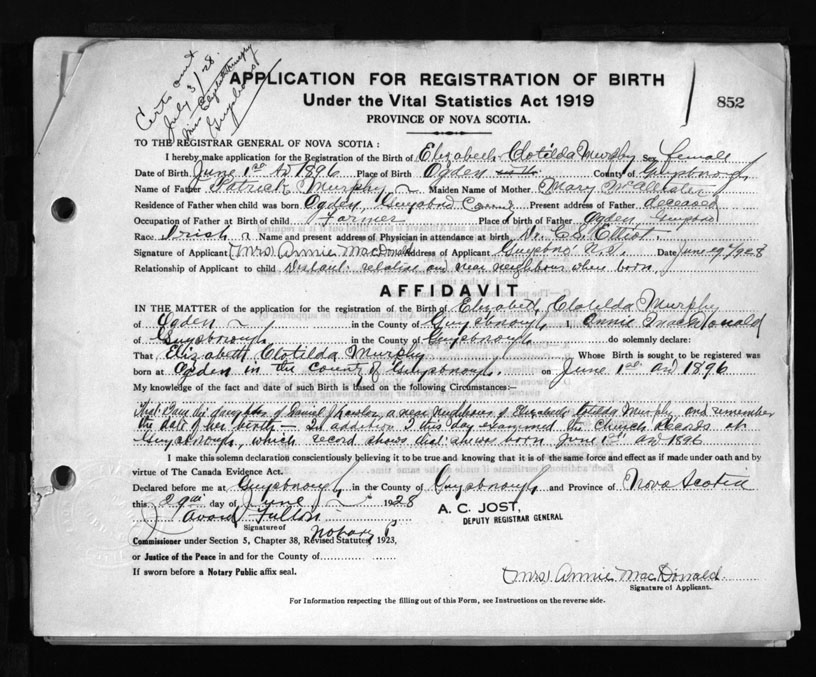 Certs sent
July 3/28.
Miss Elizabeth Murphy
Guysboro
APPLICATION FOR REGISTRATION OF BIRTH
Under the Vital Statistics Act 1919
852
PROVINCE OF NOVA SCOTIA.
TO THE REGISTRAR GENERAL OF NOVA SCOTIA :
I hereby make application for the Registration of the Birth of Elizabeth Clotilda Murphy Sex female
Date of Birth June 1st AD 1896 Place of Birth Ogden County of Guysborough
Name of Father Patrick Murphy Maiden Name of Mother Mary McAllister
Residence of Father when child was born Ogden, Guysboro County Present address of Father deceased
Occupation of Father at Birth of child Farmer Place of birth of Father Ogden, Guysboro
Race Irish Name and present address of Physician in attendance at birth Dr. C.S. Elliot.
Signature of Applicant (Mrs) Annie MacDonald Address of Applicant Guysboro N.S. Date June 29/1928
Relationship of Applicant to child Distant relative and near neighbour when born
AFFIDAVIT
IN THE MATTER of the application for the registration of the Birth of Elizabeth Clotilda Murphy
of Ogden in the County of Guysborough I, Annie MacDonald
of Guysborough in the County of Guysborough do solemnly declare:
That Elizabeth Clotilda Murphy Whose Birth is sought to be registered was
born at Ogden in the County of Guysborough. on June 1st AD 1896
My knowledge of the fact and date of such Birth is based on the following Circumstances:—
That I am the daughter of Daniel a near neighbour of Elizabeth Clotilda Murphy and remember
the date of her birth — In addition I this day examined the Church records at
Guysborough, which record shows that she was born June 1st AD 1896
I make this solemn declaration conscientiously believing it to be true and knowing that it is of the same force and effect as if made under oath and by
virtue of The Canada Evidence Act.
Declared before me at Guysborough in the County of Guysborough and Province of Nova Scotia
this 29th day of June 1928
A. C. JOST,
DEPUTY REGISTRAR GENERAL
J Avard Fulton
Signature of
Notary P
Commissioner under Section 5, Chapter 38, Revised Statutes, 1923,
or Justice of the Peace in and for the County of
If sworn before a Notary Public affix seal.
(Mrs) Annie MacDonald
Signature of Applicant.
For Information respecting the filling out of this Form, see Instructions on the reverse side.